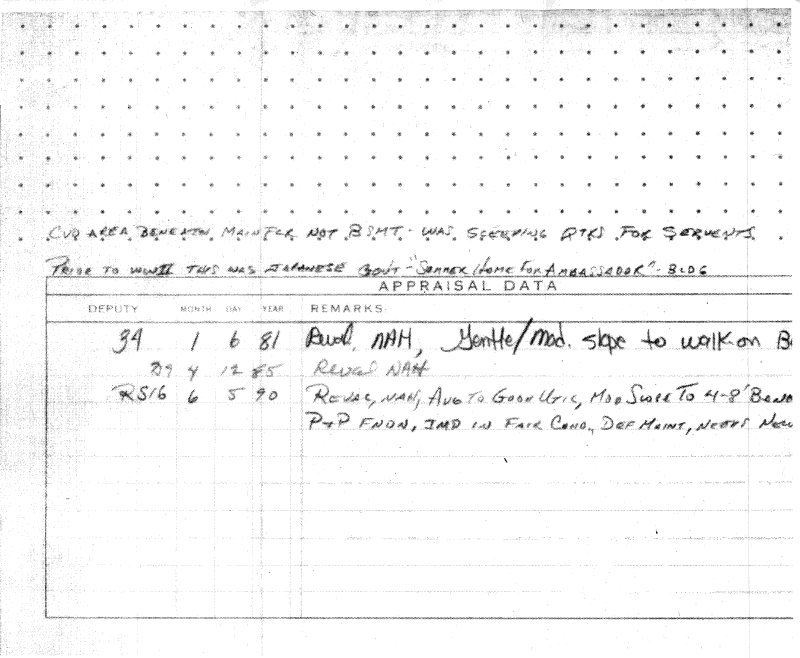 CVD AREA BENEATH MAIN FLR NOT BSMT - WAS SLEEPING QTRS FOR SERVENTS
PRIOR TO WWII THIS WAS JAPANESE GOV'T - "SUMMER HOME FOR AMBASSADOR" - BLDG
APPRAISAL DATA
DEPUTY MONTH DAY YEAR REMARKS
34 1 6 81 Reval, NAH, Gentle/Mod. slope to walk on
D9 4 12 85 Reval NAH
RS16 6 5 90 REVAL, NAH, AVG TO GOOD UTIL, MOD SLOPE TO 4-8'
P+P FNDN, IMP IN FAIR COND., DEF MAINT, NEEDS